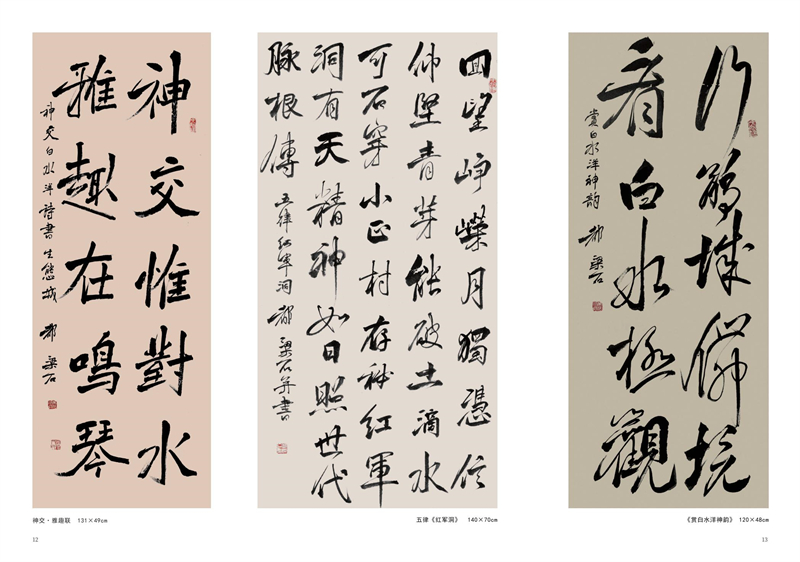 神交惟對水
雅趣在鳴琴
神交白水洋詩書生態城 都梁石
神交·雅趣联 131×49cm
12
回望崢嶸月獨憑信
仰堅青芽能破土滴水
可石穿小正村存秘紅軍
洞有天精神如日照世代
脉根傳
五律紅軍洞 都梁石并書
五律《红军洞》 140×70cm
行城僻境
看白水極觀
賞白水洋神韵 都梁石
《赏白水洋神韵》 120×48cm
13